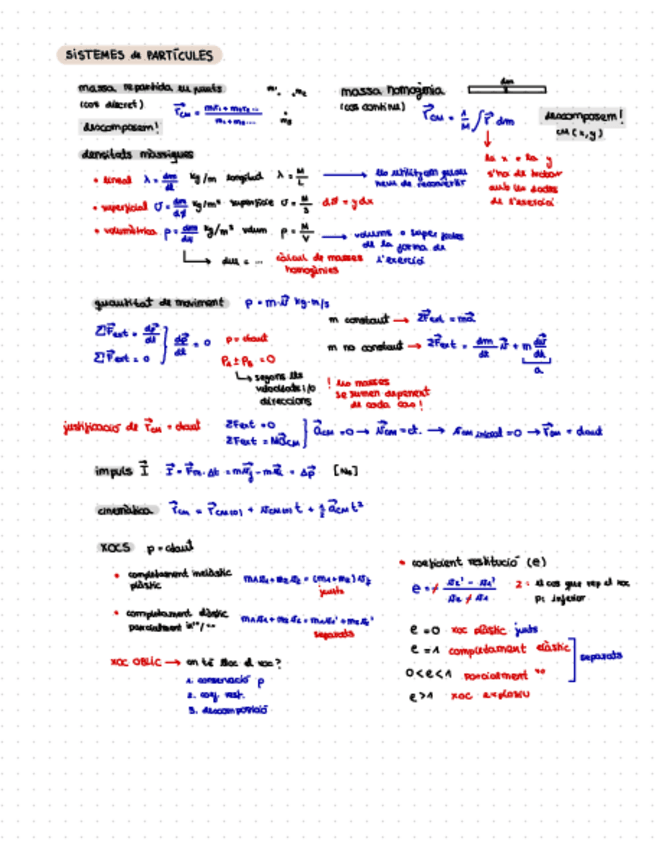 SISTEMES de PARTÍCULES
massa repartida en punts
(cos discret)
r⃗CM = m1r1 + m2r2... / m1 + m2...
m1 m2 m3
descomposem!
massa homogènia
(cos continu)
dm
r⃗CM = 1/M ∫ r⃗ dm
descomposem!
CM (x, y)
la x o la y
s'ha de trobar
amb les dades
de l'exercici
densitats màssiques
• lineal λ = dm/dl kg/m longitud λ = M/L
• superficial σ = kg/m² superfície σ = M/S = y dx
• volumètrica ρ = kg/m³ volum ρ = M/V → volums o superfícies
de la forma de
l'exercici
→ dm = ... càlcul de masses
homogènies
quantitat de moviment p = m·v⃗ kg·m/s
ΣF⃗ext = dp⃗/dt
ΣF⃗ext = 0
dp⃗/dt = 0
p = ctant
PA ± PB = 0
→ segons les
velocitats i/o
direccions
m constant → ΣF⃗ext = ma⃗
m no constant → ΣF⃗ext = dm/dt v⃗ + m dv⃗/dt
a
! les masses
se sumen depenent
de cada cas!
justificació de r⃗CM = ctant
ΣFext = 0
ΣFext = Ma⃗CM
a⃗CM = 0 → v⃗CM = ct. → vCM inicial = 0 → r⃗CM = ctant
impuls I⃗ I⃗ = F⃗m · Δt = mv⃗f - mv⃗i = Δp⃗ [Ns]
cinemàtica r⃗CM = r⃗CM(0) + vCM(0) t + 1/2 a⃗CM t²
XOCS p = ctant
• completament inelàstic
plàstic
m1v1 + m2v2 = (m1 + m2) vf
junts
• completament elàstic
parcialment
m1v1 + m2v2 = m1v1' + m2v2'
separats
XOC OBLIC → on té lloc el xoc?
1. conservació p
2. coef. rest.
3. descomposició
• coeficient restitució (e)
e = - v2' - v1' / v2 - v1
2 = el cos que rep el xoc
p: inferior
e = 0 xoc plàstic junts
e = 1 completament elàstic
0 < e < 1 parcialment
separats
e > 1 xoc explosiu